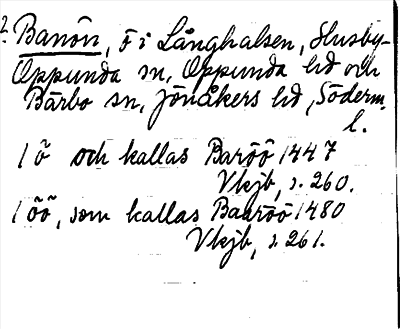 2. Banön, ö i Långhalsen, Husby-
Oppunda sn, Oppunda hd och
Bärbo sn, Jönåkers hd, Söderm.
l.
1 ö och kallas Baröö 1447
Vkjb, s. 260.
1 öö, som kallas Baaröö 1480
Vkjb, s. 261.